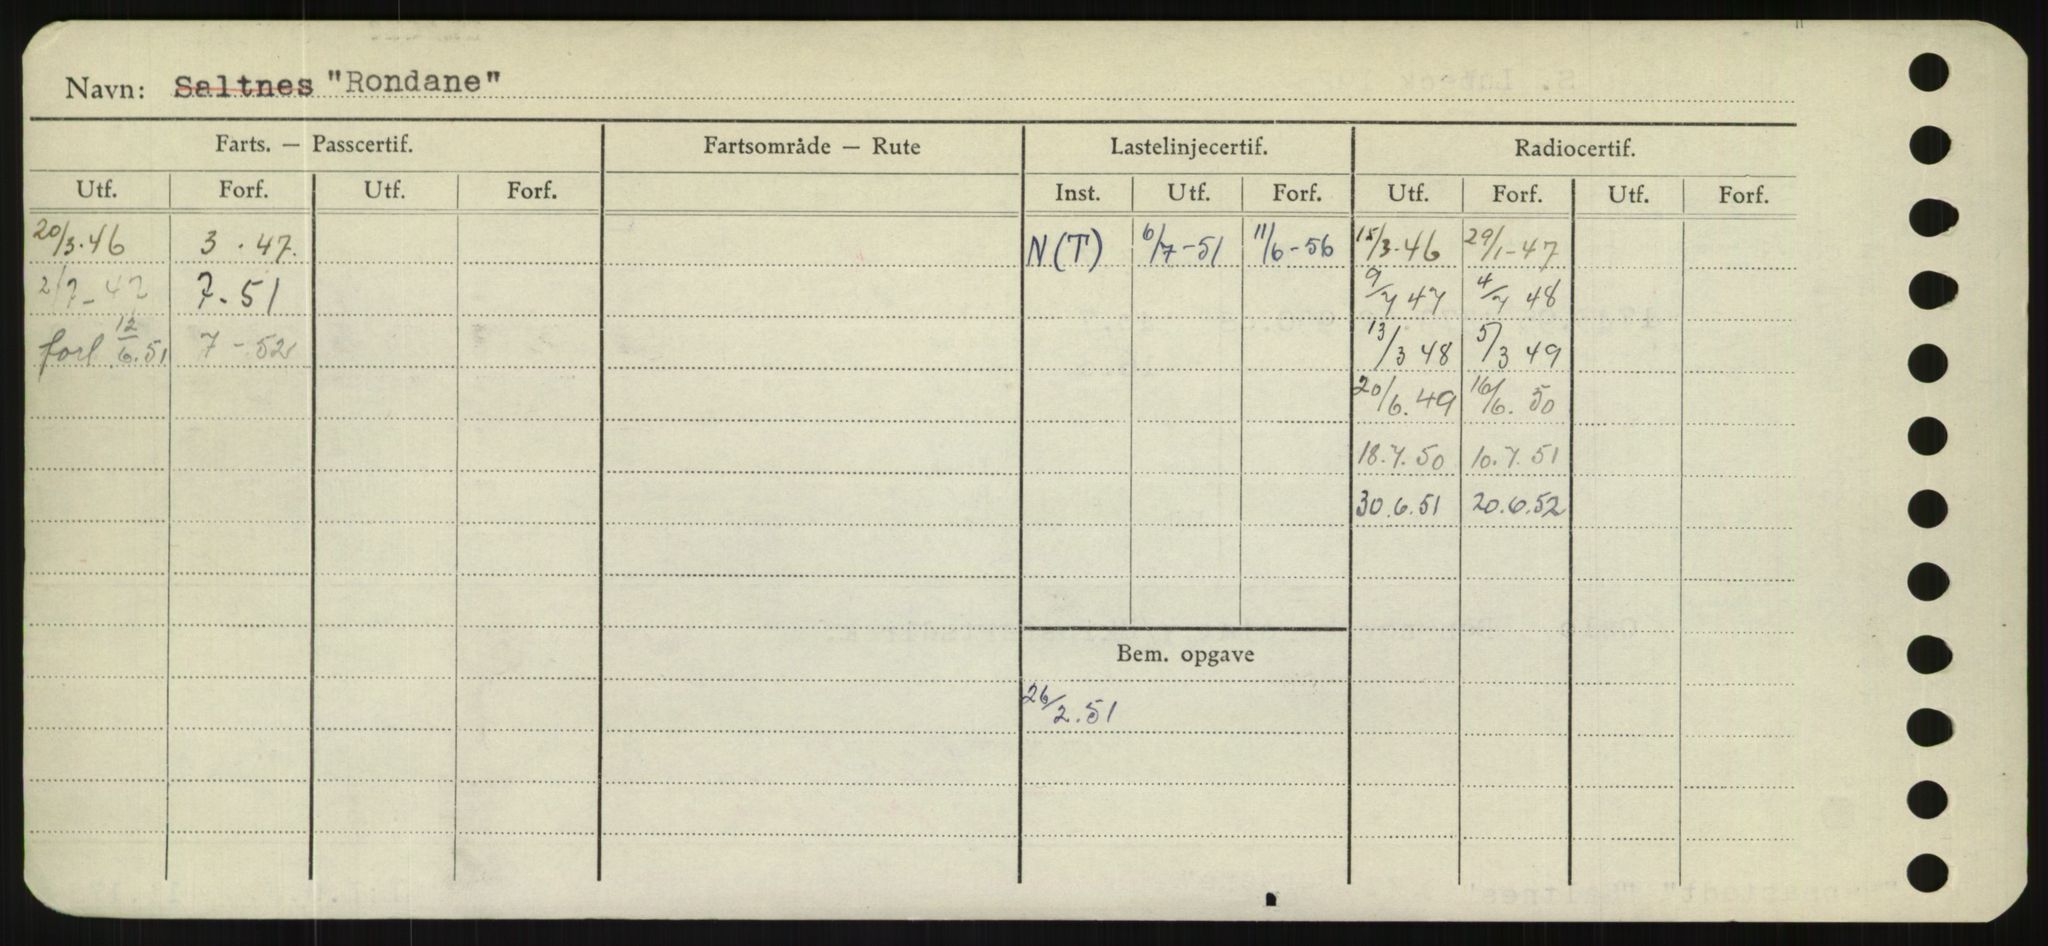 Navn: Saltnes "Rondane"
Farts. — Passcertif. Fartsområde — Rute Lastelinjecertif. Radiocertif.
Utf. Forf. Utf. Forf. Inst. Utf. Forf. Utf. Forf. Utf. Forf.
20/3.46 3.47. N(T) 6/7-51 11/6-56 15/3.46 29/1-47
2/7-47 7-51 9/7 47 4/7 48
forl 12/6.51 7-52 13/3 48 5/3 49
20/6.49 16/6.50
18.7.50 10.7.51
30.6.51 20.6.52
Bem. opgave
26/2.51